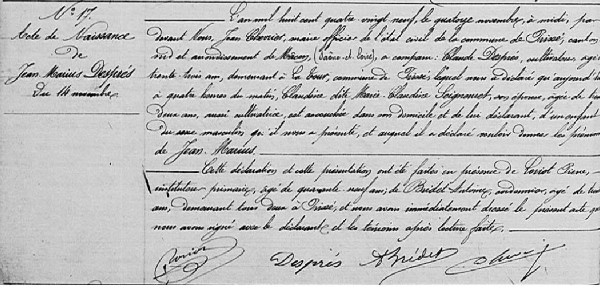 N° 17.
Acte de Naissance
de
Jean Marius Després
Du 14 novembre
L'an mil huit cent quatre vingt neuf, le quatorze novembre, à midi, par
devant Nous, Jean Chevrier, maire officier de l'état civil de la commune de Prissé, canton
nord et arrondissement de Macon, (Saône-et-Loire), a comparu Claude Després, cultivateur, agé
trente trois ans, demeurant à La Cour, commune de Prissé, lequel nous a déclaré qu'aujourd'hui
à quatre heures du matin, Claudine dite Marie Claudine Soignement, son épouse, agée de tren
deux ans, aussi cultivatrice, est accouchée dans son domicile et de lui déclarant, d'un enfant
du sexe masculin qu'il nous a présenté, et auquel il a déclaré vouloir donner les prénoms
de Jean Marius.
Cette déclaration et cette présentation ont été faites en présence de Loriot Pierre,
instituteur primaire, agé de quarante neuf ans, de Bridet Antoine, cordonnier, agé de
ans, demeurant tous deux à Prissé, et nous avons immédiatement dressé le présent acte que
nous avons signé avec le déclarant et les témoins après lecture faite.
Loriot Després A Bridet